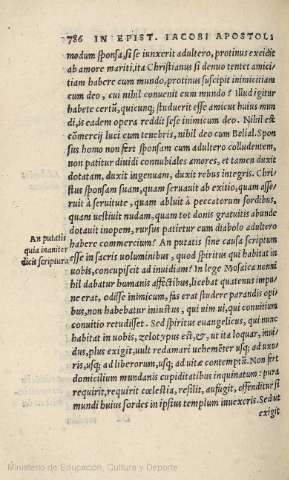 786 IN EPIST. IACOBI APOSTOLI
modum sponsa, si se iunxerit adultero, protinus excidit
ab amore mariti, ita Christianus si denuo tentet amici-
tiam habere cum mundo, protinus suscipit inimicitiam
cum deo, cui nihil conuenit cum mundo? Illud igitur
habete certũ, quicunq; studuerit esse amicus huius mun
di, is eadem opera reddit sese inimicum deo. Nihil est
cõmercij luci cum tenebris, nihil deo cum Belial. Spon
sus homo non fert sponsam cum adultero colludentem,
non patitur diuidi connubiales amores, et tamen duxit
dotatam, duxit ingenuam, duxit rebus integris. Chri
stus sponsam suam, quam seruauit ab exitio, quam asse/
ruit à seruitute, quam abluit à peccatorum sordibus,
quam uestiuit nudam, quam tot donis gratuitis abunde
dotauit inopem, rursus patietur cum diabolo adultero
An putatis
habere commercium? An putatis sine causa scriptum
quia inaniter
esse in sacris uoluminibus, quod spiritus qui habitat in
dicit scriptura
uobis, concupiscit ad inuidiam? In lege Mosaica nemi
hil dabatur humanis affectibus, licebat quatenus impu
ne erat, odisse inimicum, fas erat studere parandis opi
bus, non habebatur iniustus, qui uim ui, qui conuitium
conuitio retudisset. Sed spiritus euangelicus, qui nunc
habitat in uobis, zelotypus est, &, ut ita loquar, inui/
dus, plus exigit, uult redamari uehemẽter usq; ad uxo/
ris, usq; ad liberorum, usq; ad uitæ contemptũ. Non fert
domicilium mundanis cupiditatibus inquinatum: pura
requirit, requirit cœlestia, resilit, aufugit, offenditur si
mundi huius sordes in ipsius templum inuexeris. Sed ut
exigit
Ministerio de Educación, Cultura y Deporte